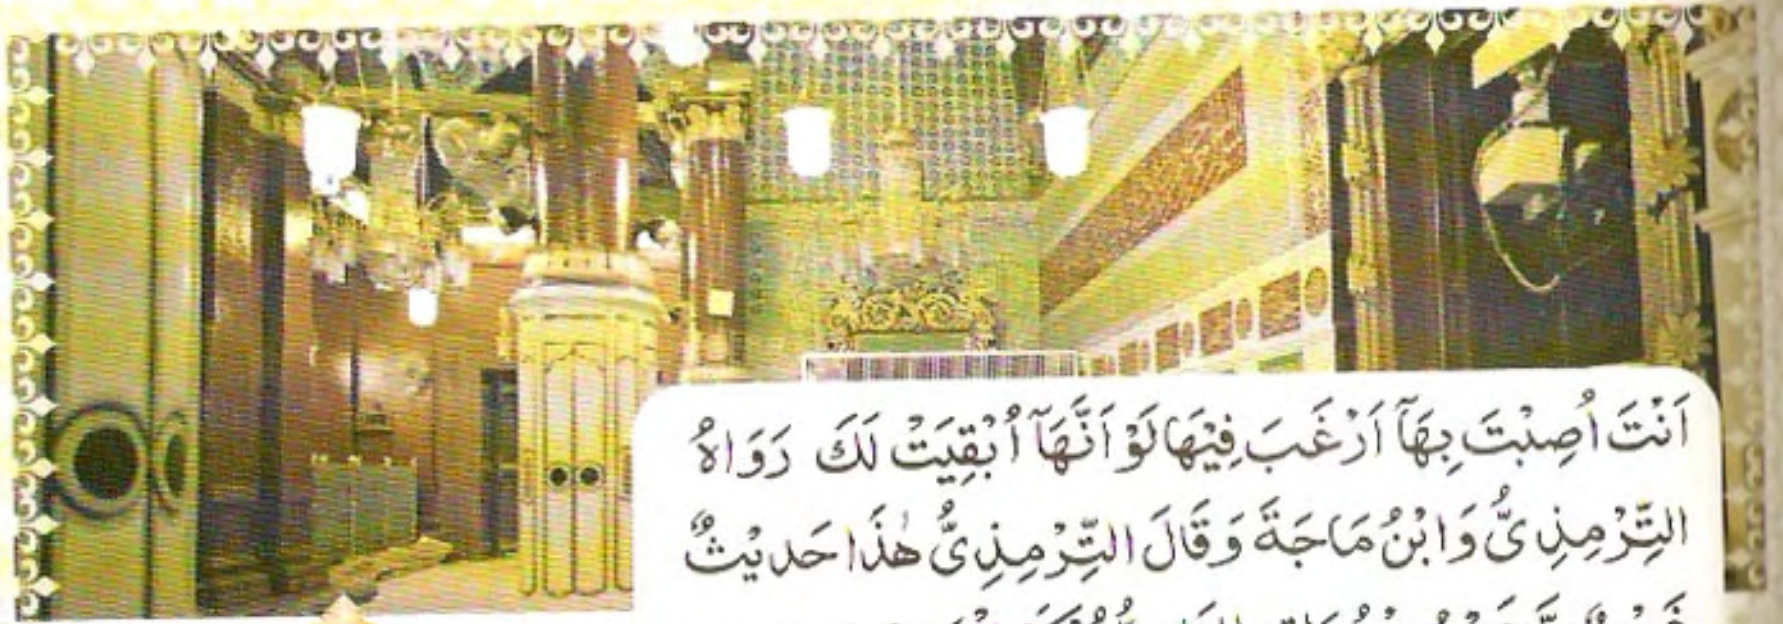 اَنْتَ اُصِبْتَ بِهَآ اَرْغَبَ فِيْهَا لَوْ اَنَّهَآ اُبْقِيَتْ لَكَ رَوَاهُ
التِّرْمِذِىُّ وَابْنُ مَاجَةَ وَقَالَ التِّرْمِذِىُّ هٰذَا حَدِيْثٌ